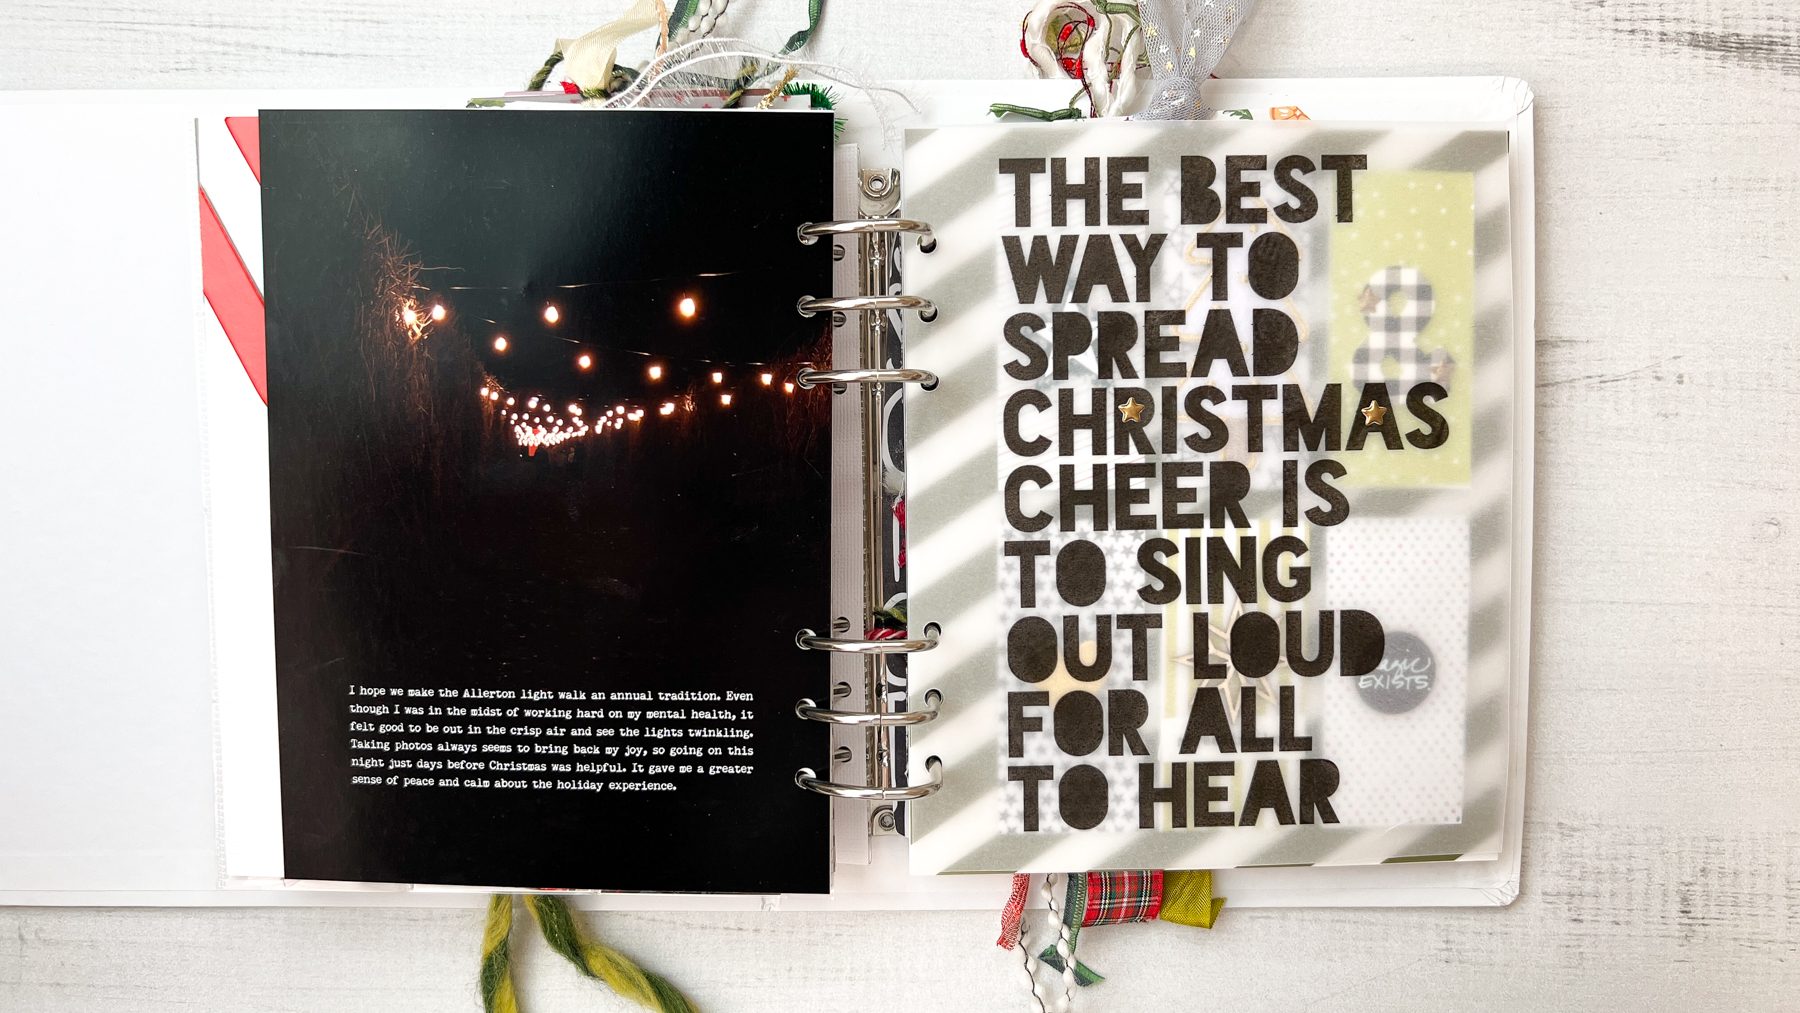 I hope we make the Allerton light walk an annual tradition. Even
though I was in the midst of working hard on my mental health, it
felt good to be out in the crisp air and see the lights twinkling.
Taking photos always seems to bring back my joy, so going on this
night just days before Christmas was helpful. It gave me a greater
sense of peace and calm about the holiday experience.
THE BEST
WAY TO
SPREAD
CHRISTMAS
CHEER IS
TO SING
OUT LOUD
FOR ALL
TO HEAR
&
EXISTS